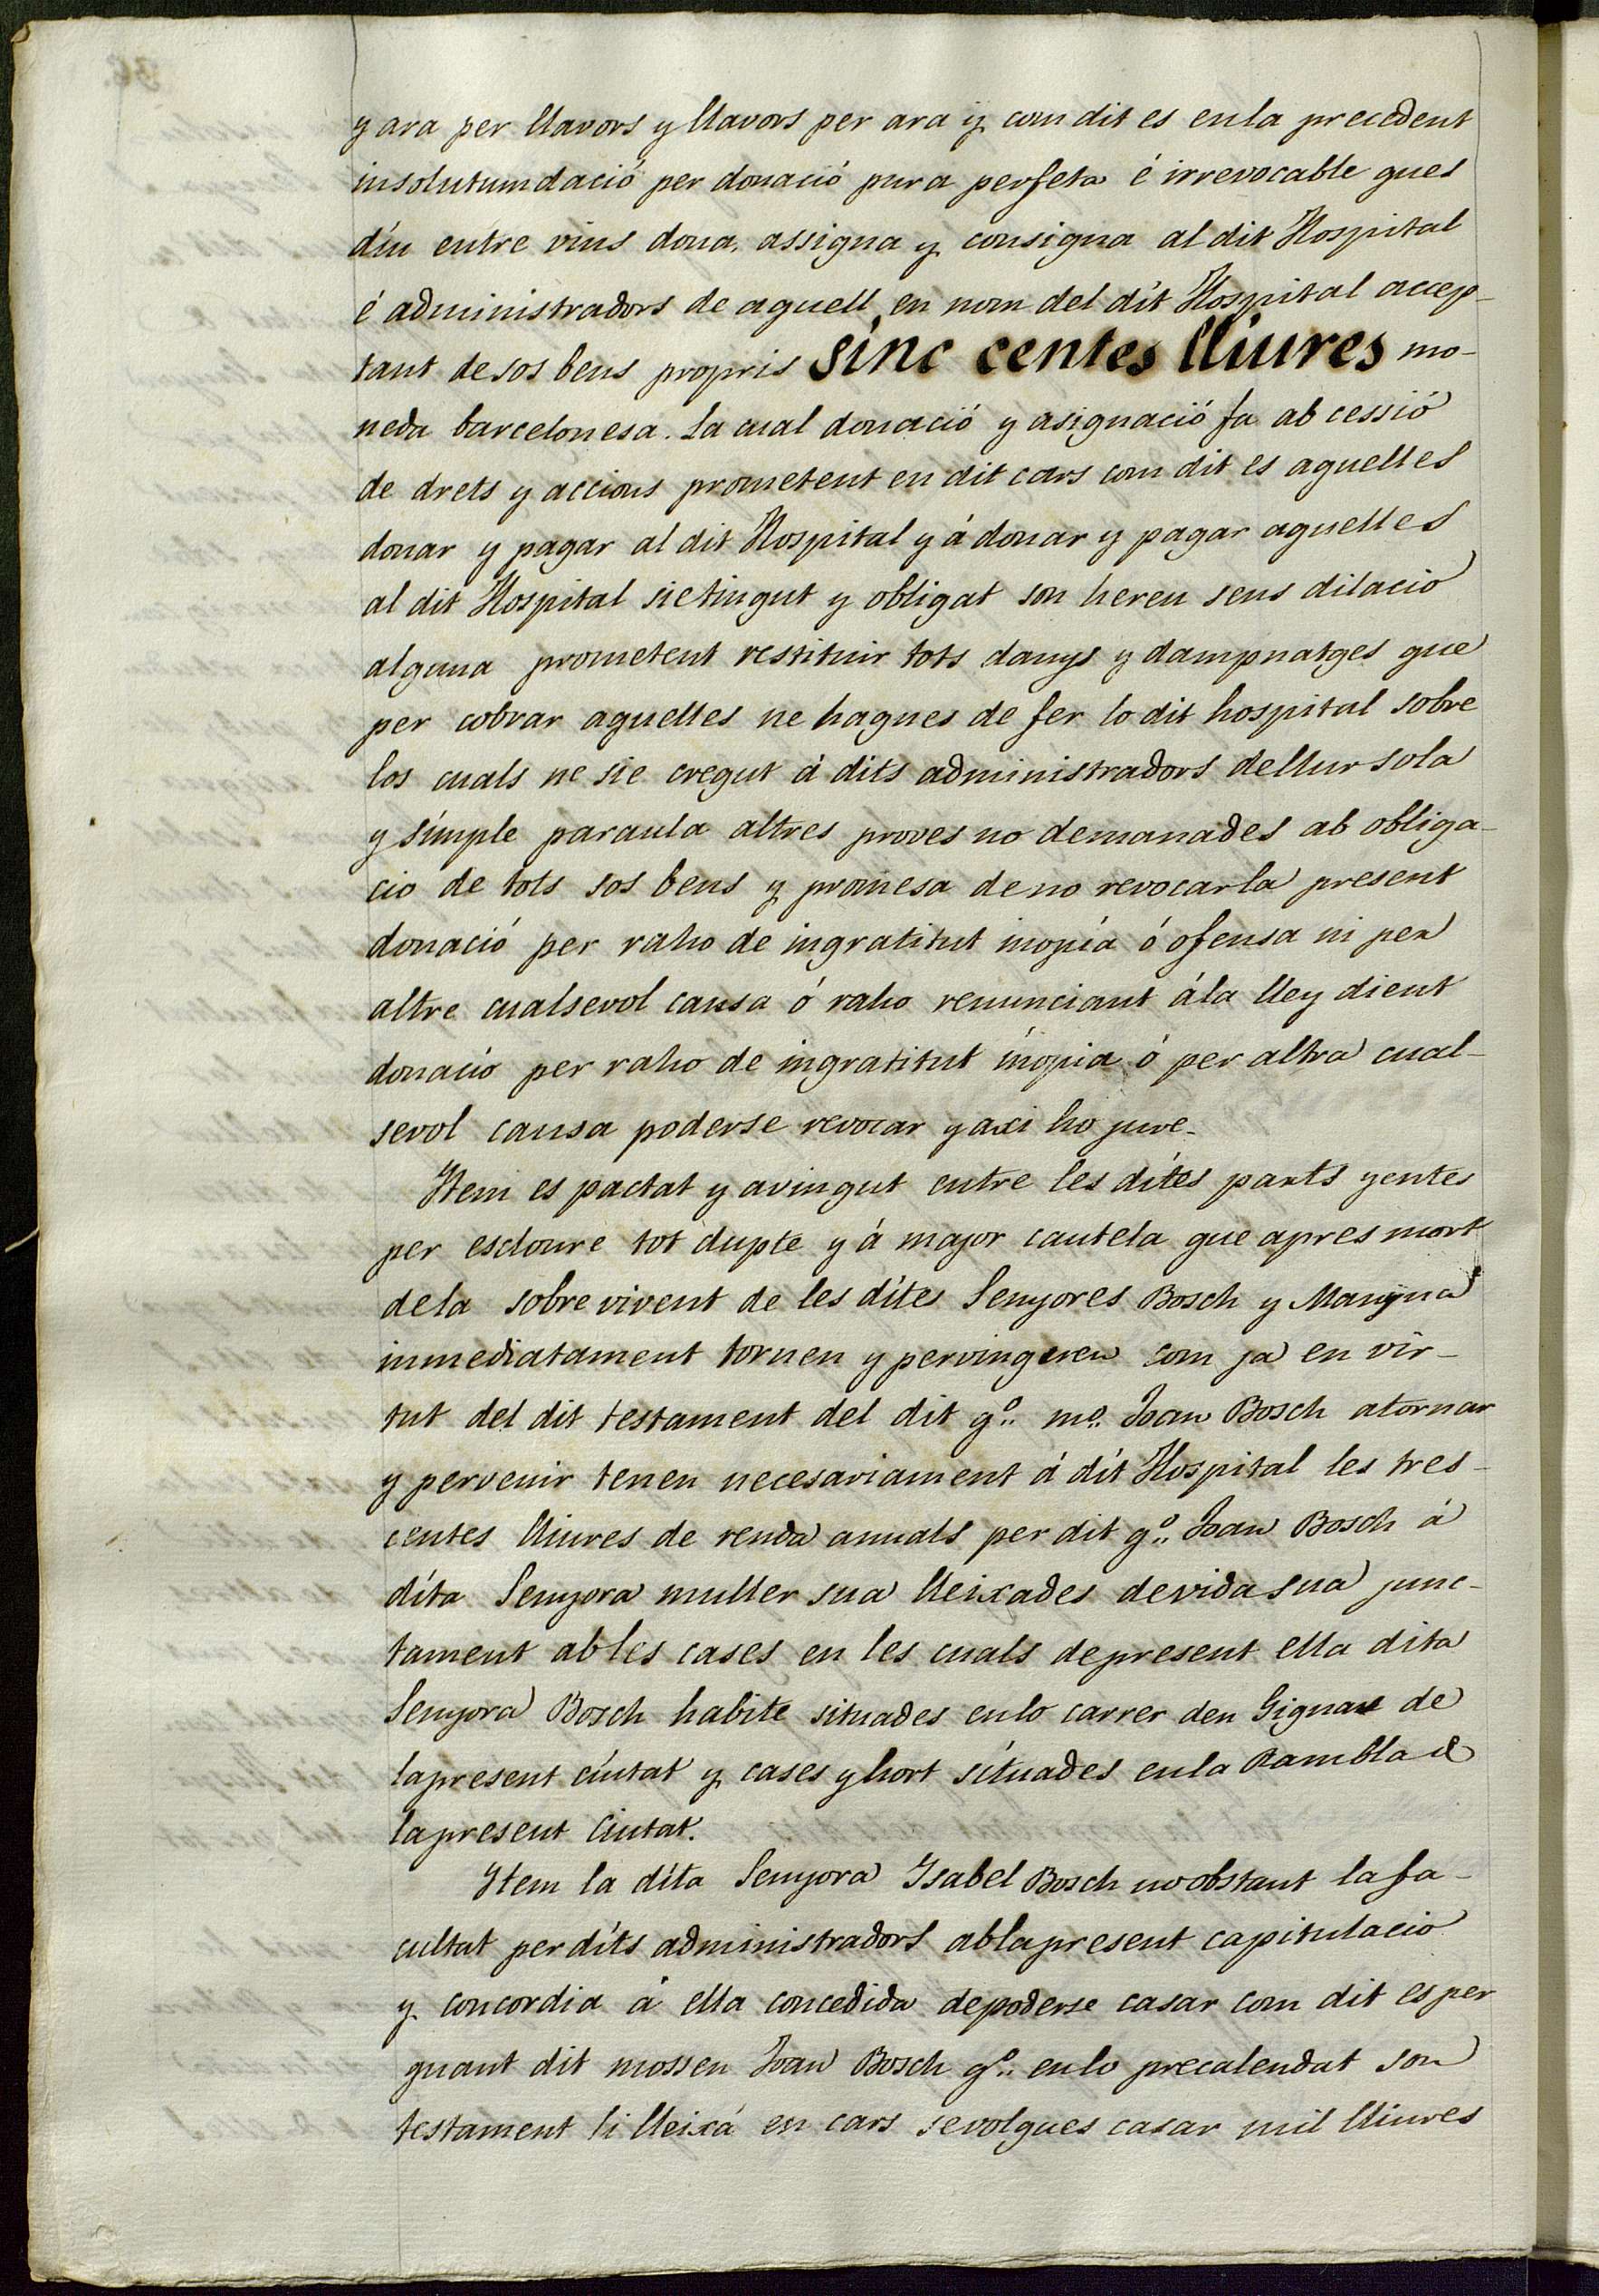 y ara per llavors y llavors per ara y com dit es en la precedent
insolutumdació per donació pura perfeta é irrevocable ques
diu entre vius dona, assigna y consigna al dit Hospital
é administradors de aquell en nom del dit Hospital accep-
tant de sos bens propris sinc centes lliures mo-
neda barcelonesa. La cual donació y asignació fa ab cessió
de drets y accions prometent en dit cars com dit es aquelles
donar y pagar al dit Hospital y á donar y pagar aquelles
al dit Hospital sie tingut y obligat son hereu sens dilació
alguna prometent restituir tots danys y dampnatges que
per cobrar aquelles ne hagues de fer lo dit hospital sobre
los cuals ne sie cregut á dits administradors de llur sola
y simple paraula altres proves no demanades ab obliga-
cio de tots sos bens y promesa de no revocar la present
donació per raho de ingratitut inopía ó ofensa ni per
altre cualsevol causa ó raho renunciant á la lley dient
donació per raho de ingratitut inopia ó per altra cual-
sevol causa poderse revocar y axi ho jure.
Item es pactat y avingut entre les dites parts y entes
per escloure tot dupte y á major cautela que apres mort
de la sobrevivent de les dites Senyores Bosch y Manyna
inmediatament tornen y pervinguen com ja en vir-
tut del dit testament del dit gº. mº. Joan Bosch atornar
y pervenir tenen necesariament á dit Hospital les tres-
centes lliures de renda anuals per dit gº. Joan Bosch á
dita Senyora muller sua lleixades de vida sua junc-
tament ab les cases en les cuals de present ella dita
Senyora Bosch habite situades en lo carrer den Gignas de
la present ciutat y cases y hort situades en la Rambla de
la present Ciutat.
Item la dita Senyora Isabel Bosch no obstant la fa-
cultat per dits administradors ab la present capitulacio
y concordia á ella concedida de poderse casar com dit es per
quant dit mossen Joan Bosch gº. en lo precalendat son
testament li lleixá en cars se volgues casar mil lliures